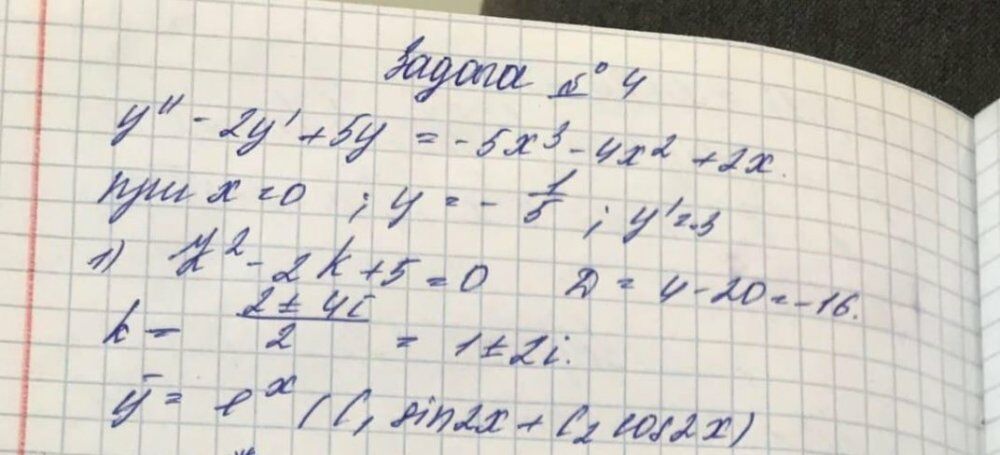 Задача № 4
y'' - 2y' + 5y = -5x³ - 4x² + 2x.
при x = 0 ; y = - 1/5 ; y' = 3
1) k² - 2k + 5 = 0 D = 4 - 20 = -16.
k = (2 ± 4i)/2 = 1 ± 2i.
ȳ = eˣ (C₁ sin2x + C₂ cos2x)